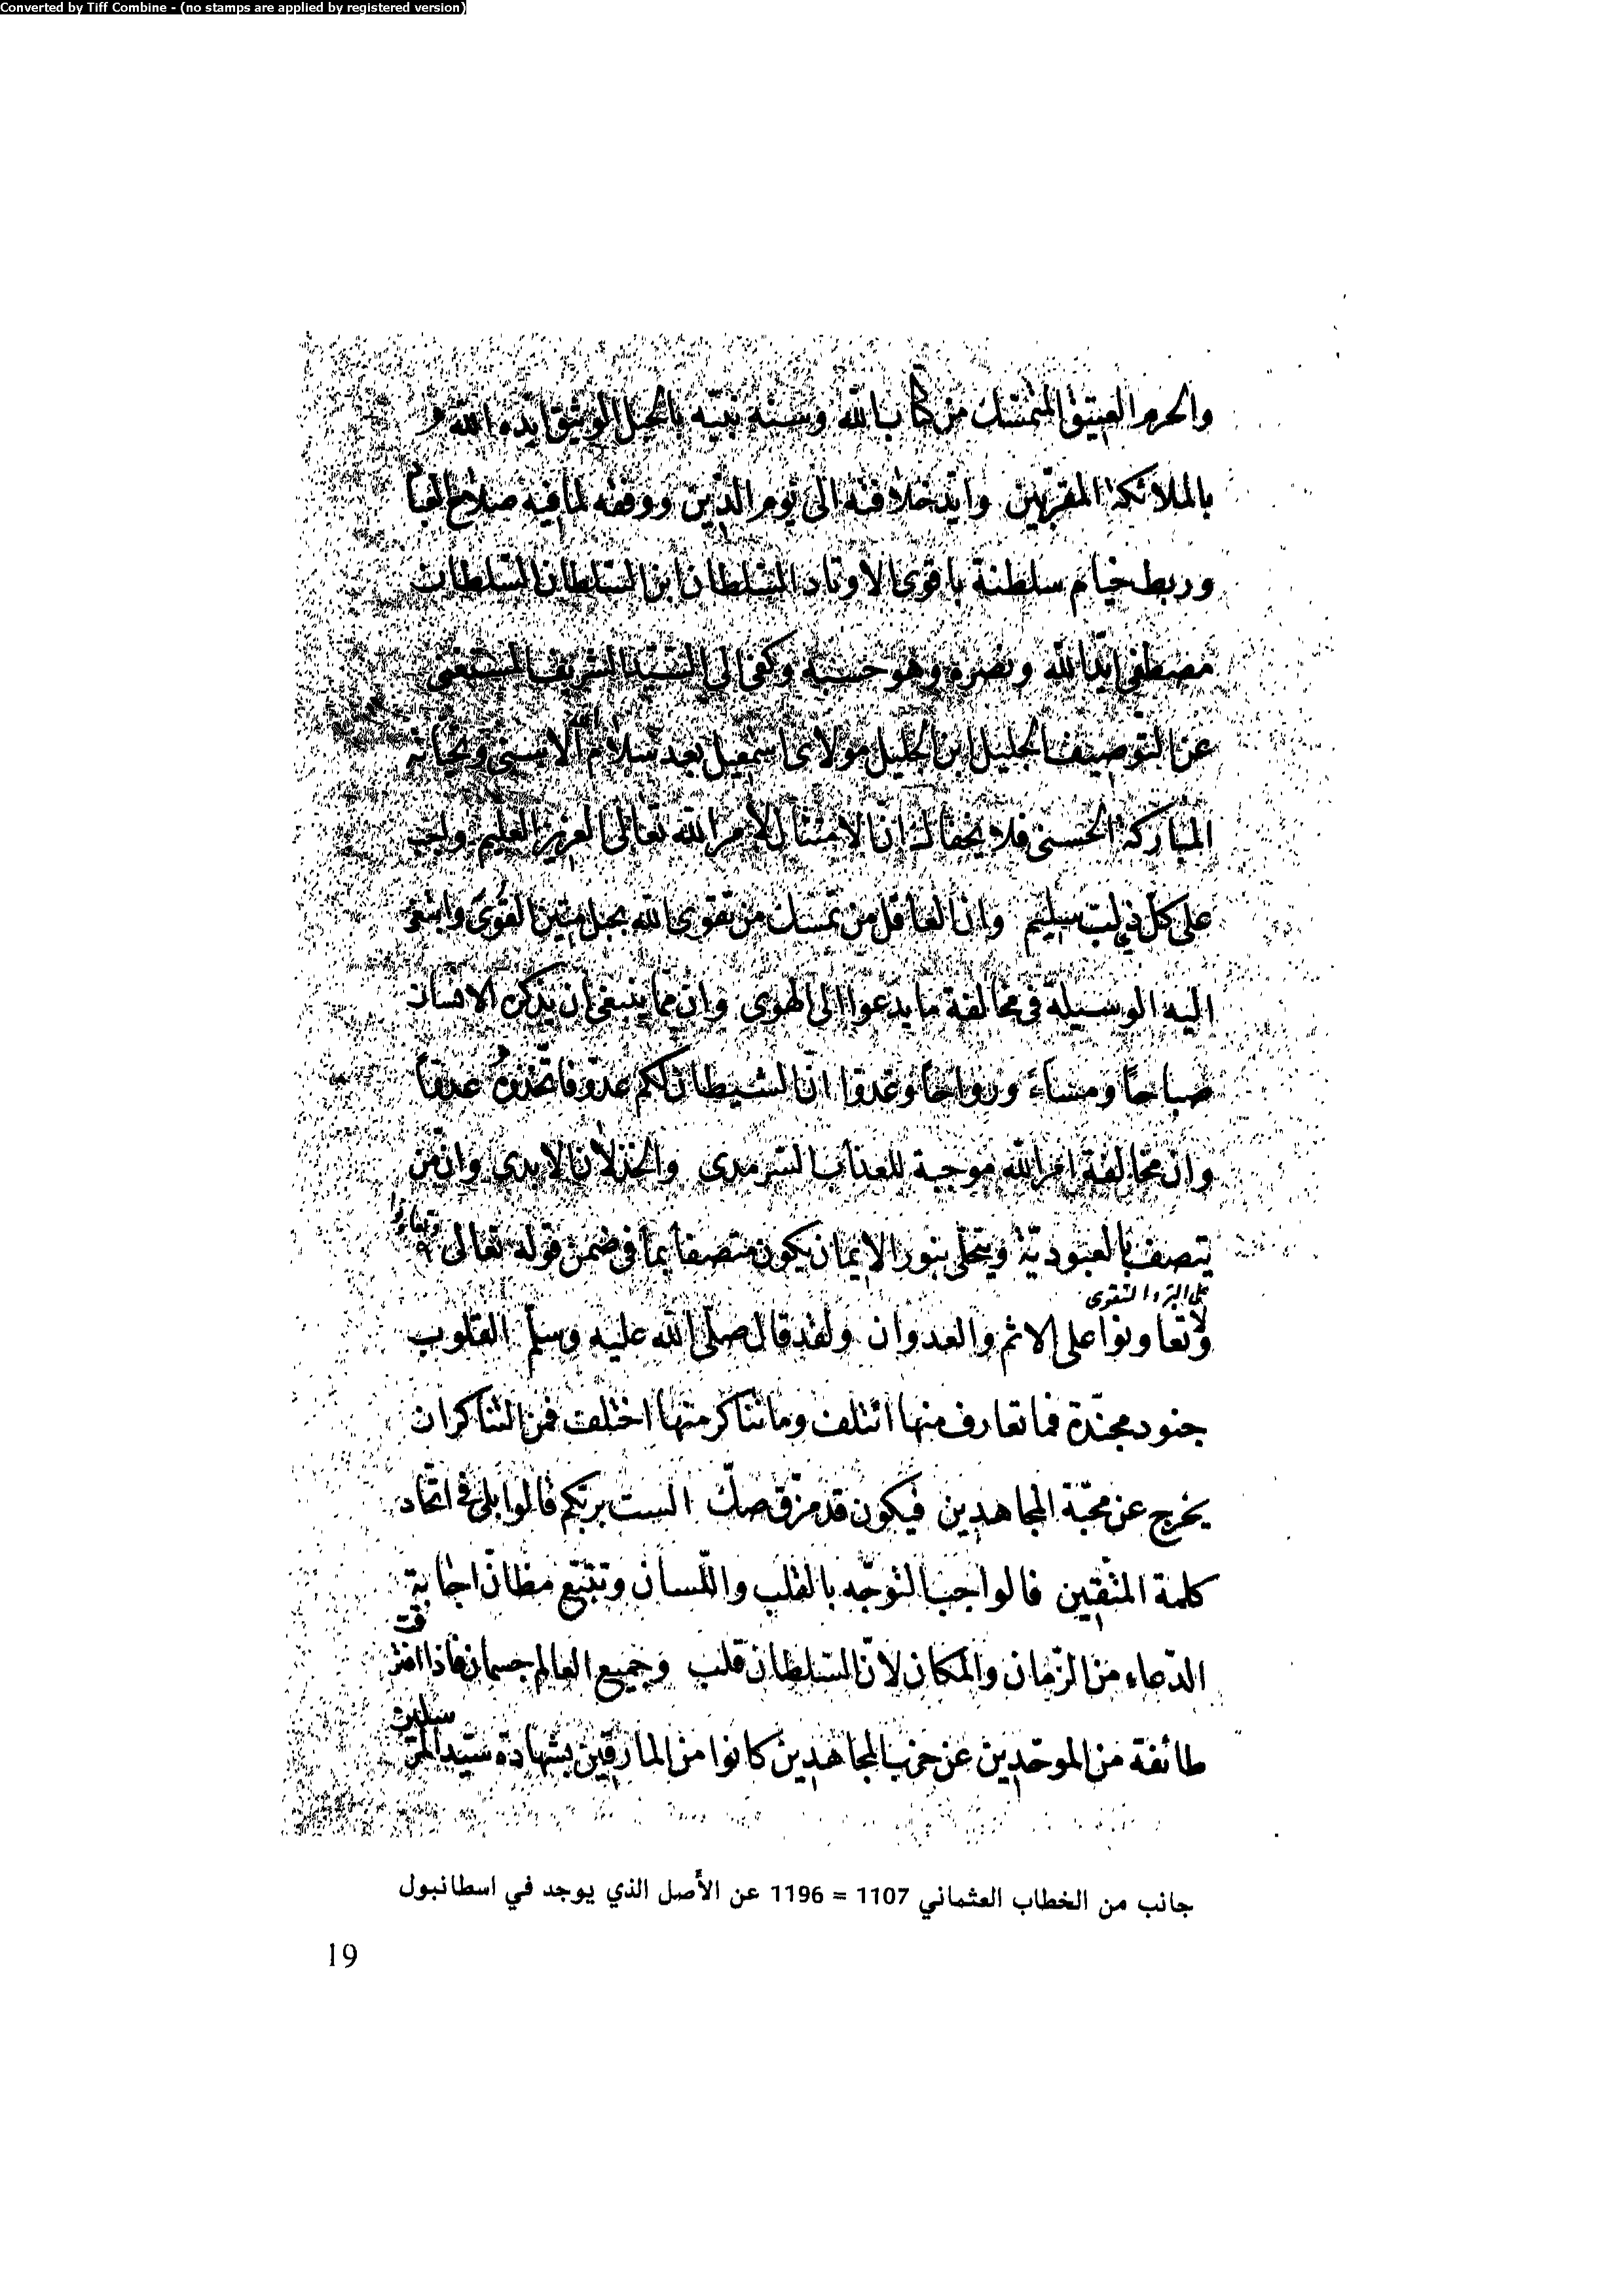 Converted by Tiff Combine - (no stamps are applied by registered version)
والحرم العتيق المتمسك من كتاب الله وسنة نبيّه بالحبل الوثيق ايده الله
بالملائكة المقرّبين وايّد خلافته الى يوم الدّين ووفقه لما فيه صلاح العباد
وربط خيام سلطنة باقوى الاوتاد السّلطان ابن السّلطان السّلطان
مصطفى ايّد الله ونصره وهو حسبه وكفى الى السّيّد الشريف المستغنى
عن التّوصيف الجليل ابن الجليل مولاى اسمعيل بعد سلام الله الاسنى وتحيّاته
المباركة الحسنى فلا يخفاك انّ الامتثال لامر الله تعالى العزيز العليم واجب
على كلّ ذي لبّ سليم وانّ العاقل من تمسّك من تقوى الله بحبل متين القوى وابتغى
اليه الوسيلة فى مخالفة ما يدعوا الى الهوى وانّ ممّا ينبغى ان يذكره الانسان
صباحًا ومساءً ورواحًا وغدوا انّ الشيطان لكم عدوّ فاتّخذوه عدوّا
وان مخالفة امر الله موجبة للعذاب السّرمدى والخذلان الابدى وانّ من
يتصف بالعبوديّة ويتحلّى بنور الايمان يكون متصفا بما فى ضمن قوله تعالى وتعاونوا
على البرّ والتقوى
ولا تعاونوا على الاثم والعدوان ولقد قال صلّى الله عليه وسلّم القلوب
جنود مجنّدة فما تعارف منها ائتلف وما تناكر منها اختلف فمن التناكر ان
يخرج عن محبّة المجاهدين فيكون قد مزّق صكّ الست بربّكم قالوا بلى فى اتّحاد
كلمة المتّقين فالواجب التوجّه بالقلب واللّسان وتتبّع مظانّ اجابة
الدّعاء من الزّمان والمكان لانّ السّلطان قلب وجميع العالم جسمان فاذا افترقت
طائفة من الموحّدين عن حزب المجاهدين كانوا من المارقين بشهادة سيّد المرسلين
جانب من الخطاب العثماني 1107 = 1196 عن الأصل الذي يوجد في اسطانبول
19